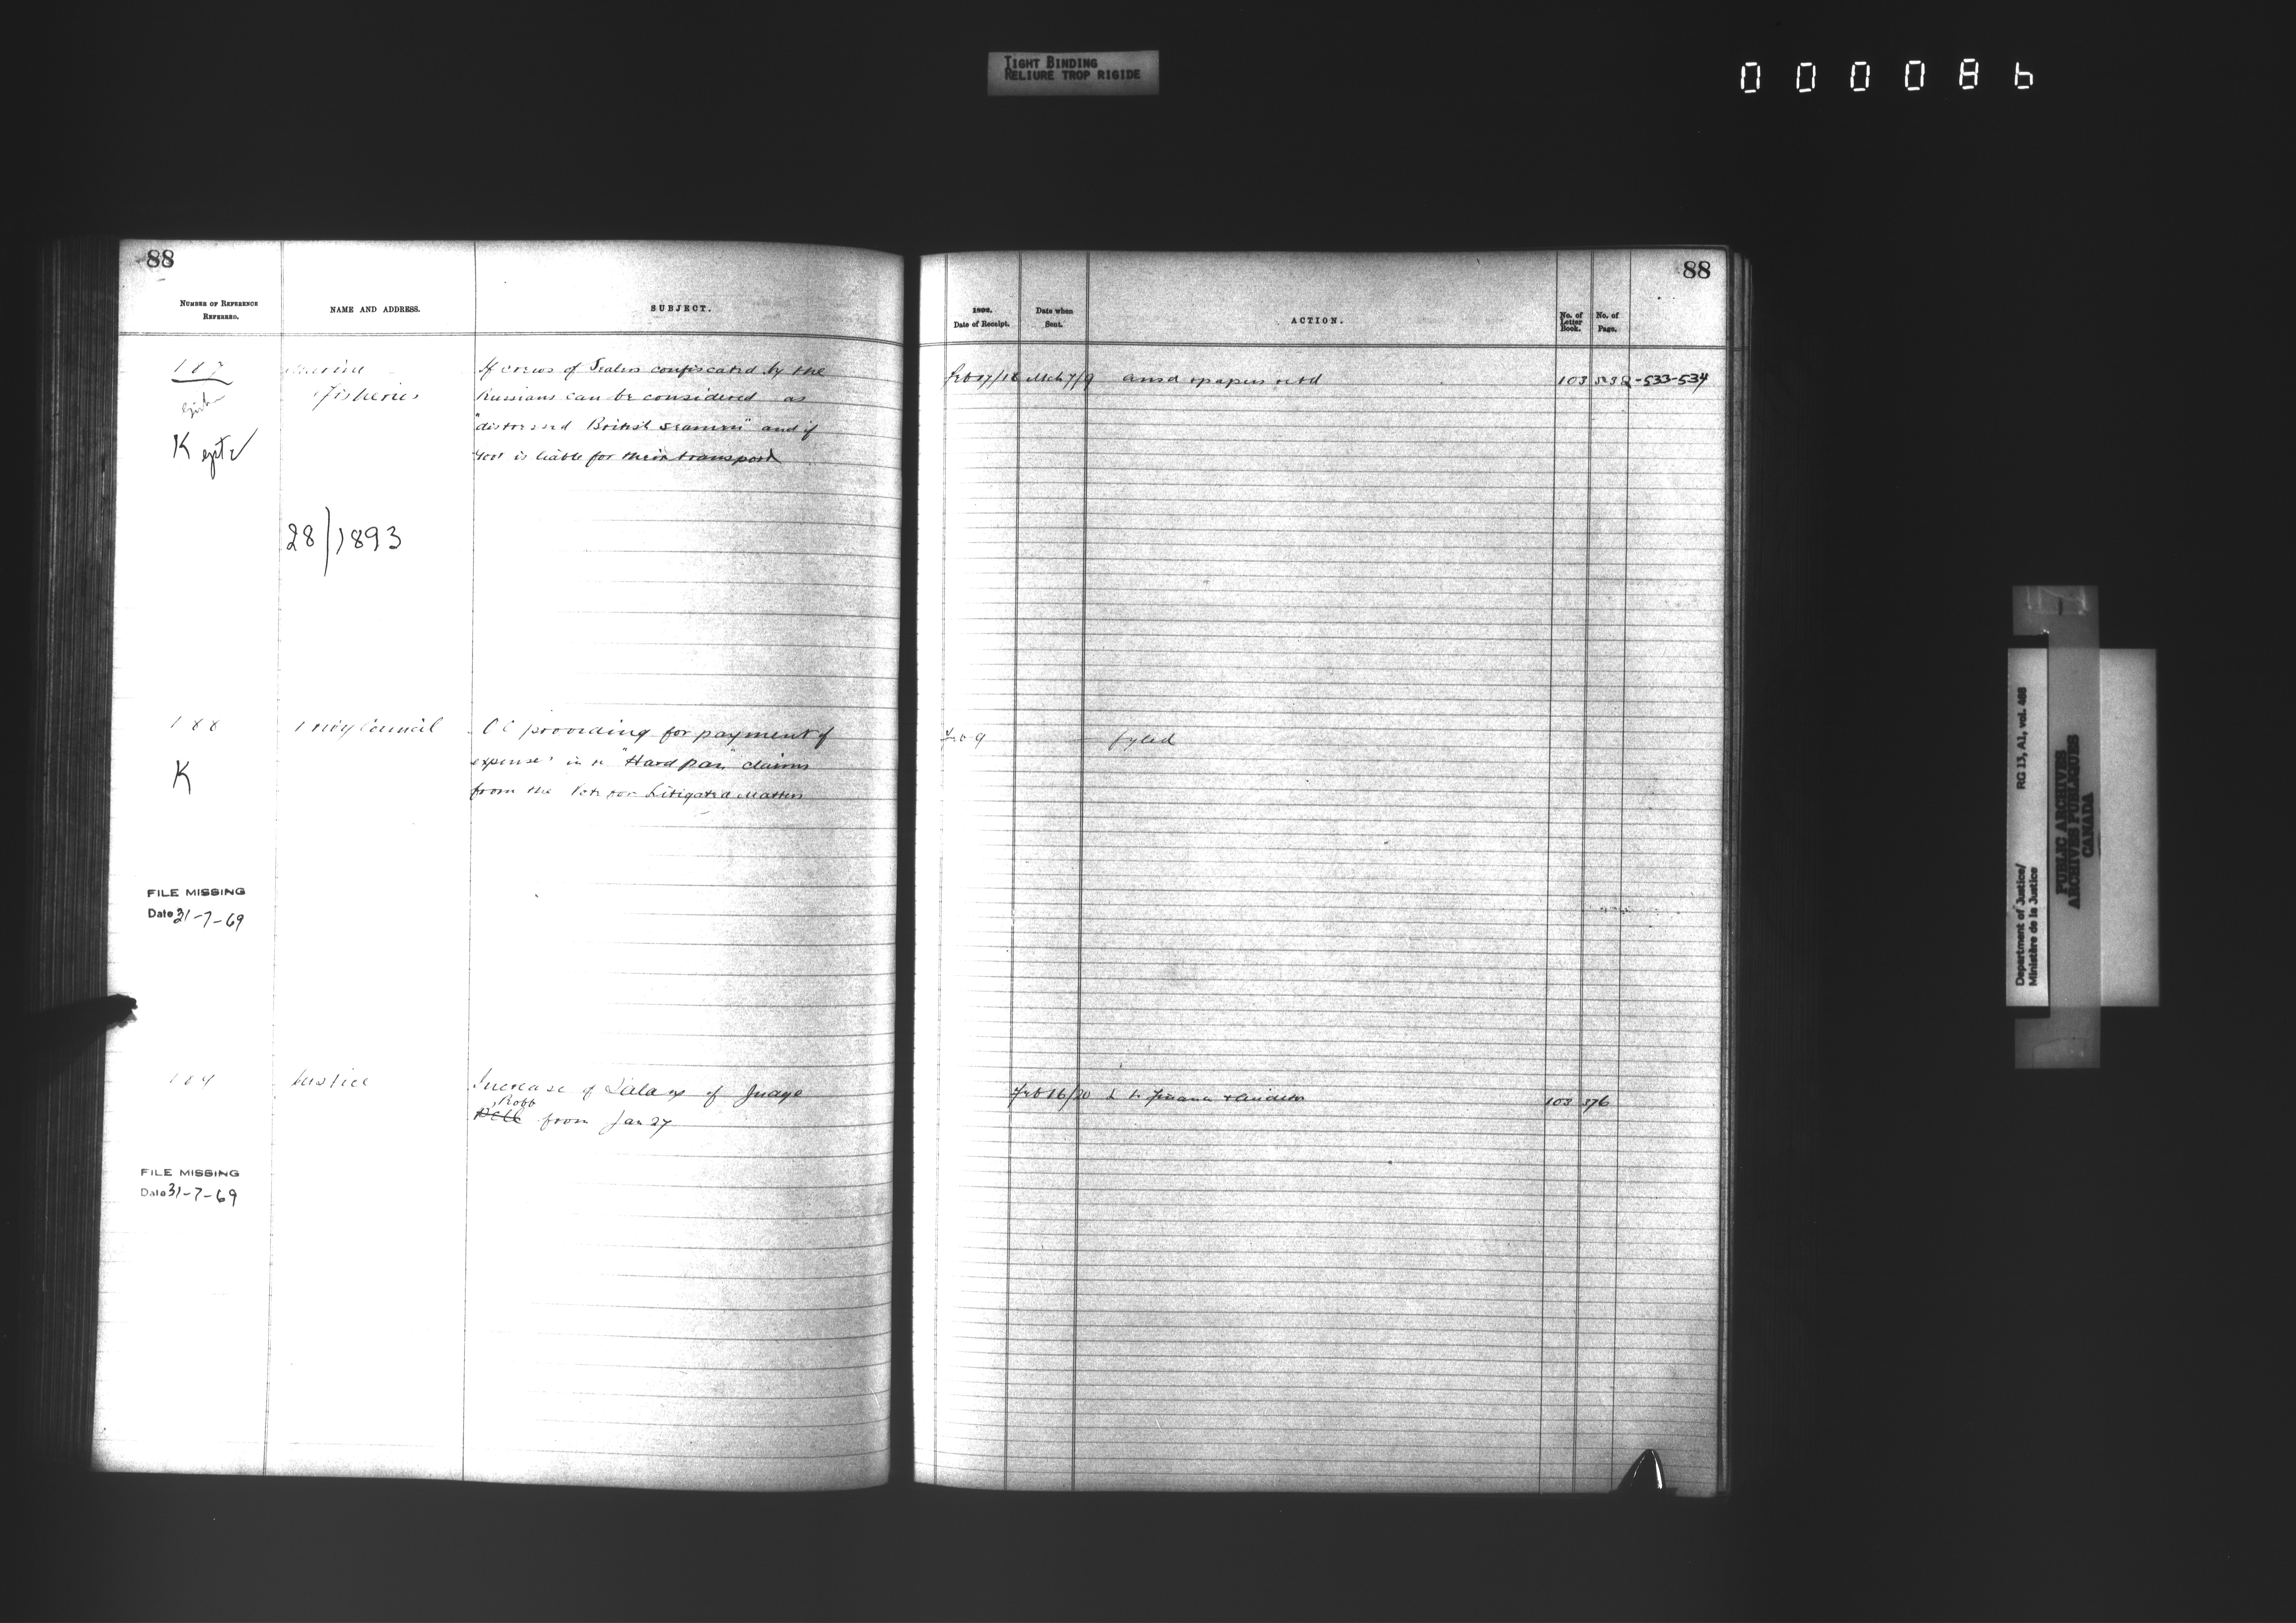 TIGHT BINDING
RELIURE TROP RIGIDE
000086
88
NUMBER OF REFERENCE
REFERRED.
NAME AND ADDRESS.
SUBJECT.
187
Marine
Fisheries
If crews of Sealers confiscated by the
Russians can be considered as
"distressed British seamen" and if
Govt is liable for their transport
K
28/1893
188
Privy Council
OC providing for payment of
expenses in re "Hard pan" claims
from the Vote for Litigated Matters
K
FILE MISSING
Date 31-7-69
189
Justice
Increase of Salary of Judge
Robb
from Jan 27
FILE MISSING
Date 31-7-69
88
1892.
Date of Receipt.
Date when
Sent.
ACTION.
No. of
Letter
Book.
No. of
Page.
Feb 17/18 Mch 7/9 ansd & papers retd 103 532-533-534
Feb 9 fyled
Feb 16/20 103 376
Department of Justice/ RG 13, A1, vol. 488
Ministère de la Justice
PUBLIC ARCHIVES
ARCHIVES PUBLIQUES
CANADA